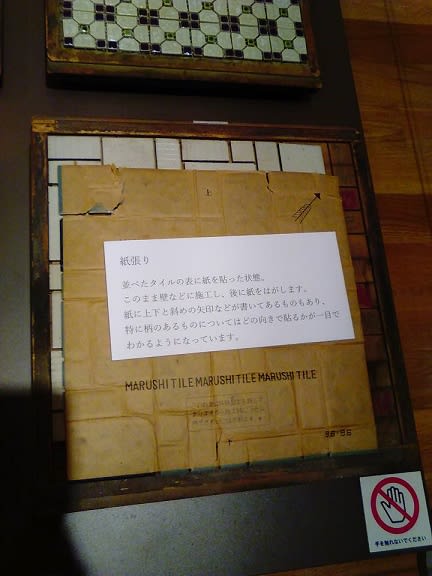 上
紙張り
並べたタイルの表に紙を貼った状態。
このまま壁などに施工し、後に紙をはがします。
紙に上下と斜めの矢印などが書いてあるものもあり、
特に柄のあるものについてはどの向きで貼るかが一目で
わかるようになっています。
MARUSHI TILE MARUSHI TILE MARUSHI TILE
手を触れないでください